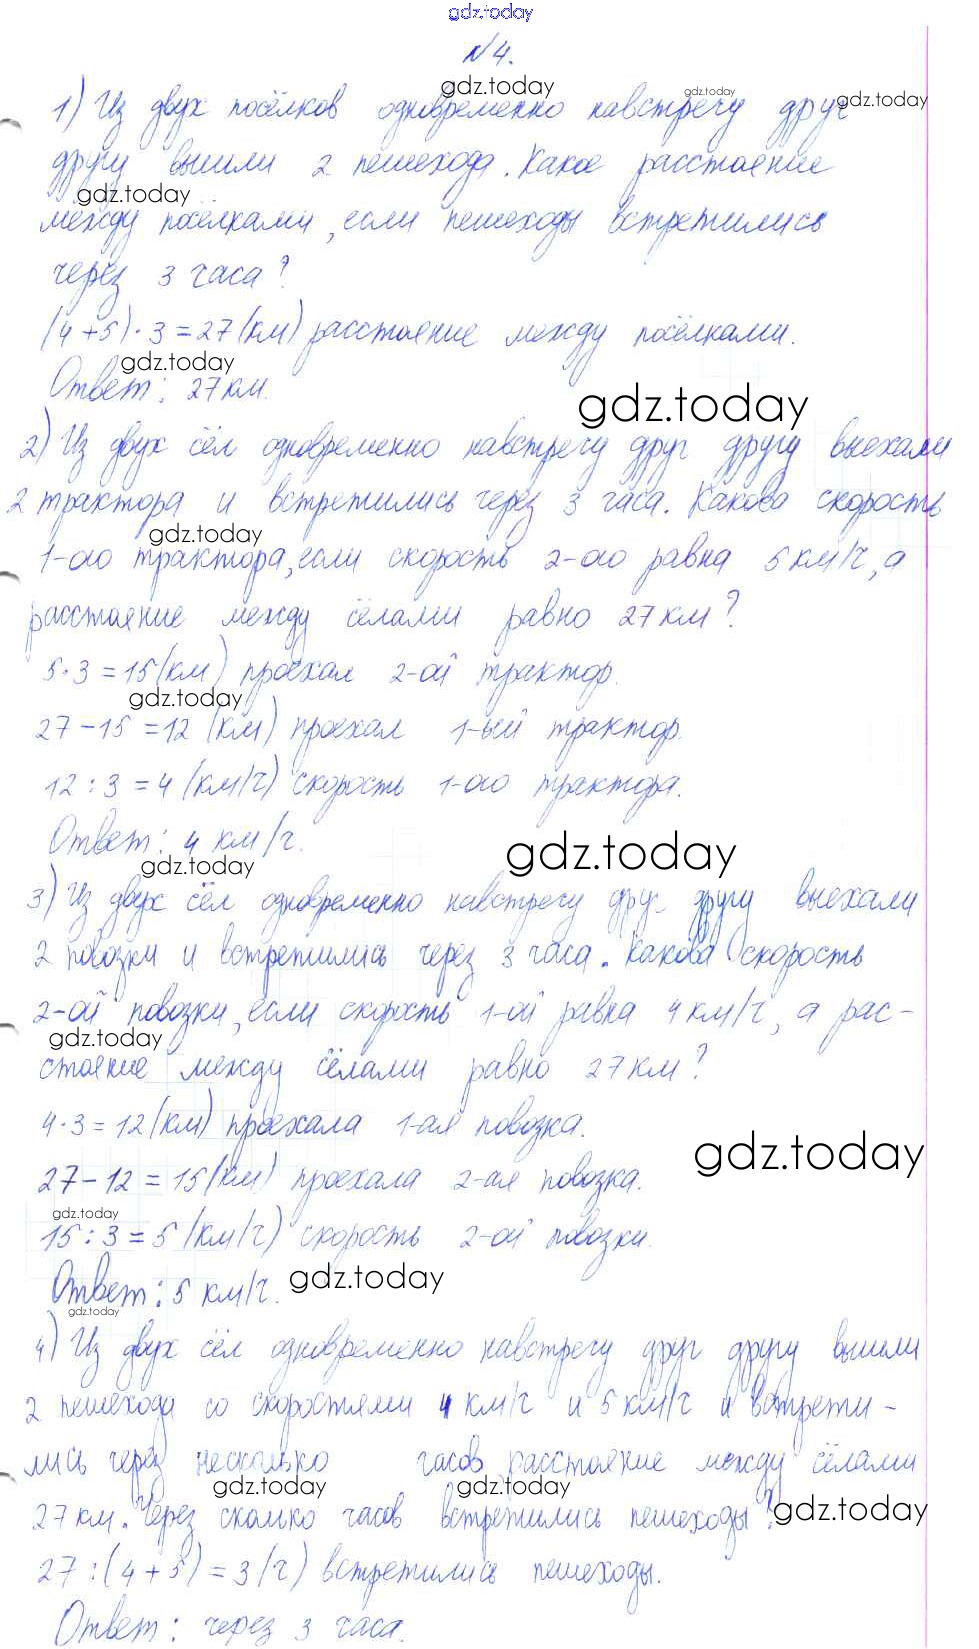 gdz.today
№4.
gdz.today gdz.today gdz.today
1) Из двух посёлков одновременно навстречу друг
другу вышли 2 пешехода. Какое расстояние
gdz.today
между посёлками, если пешеходы встретились
через 3 часа?
(4+5)·3=27(км) расстояние между посёлками.
gdz.today
Ответ: 27 км.
gdz.today
2) Из двух сёл одновременно навстречу друг другу выехали
2 трактора и встретились через 3 часа. Какова скорость
gdz.today
1-ого трактора, если скорость 2-ого равна 5 км/ч, а
расстояние между сёлами равно 27 км?
5·3=15(км) проехал 2-ой трактор.
gdz.today
27-15=12 (км) проехал 1-ый трактор.
12:3=4 (км/ч) скорость 1-ого трактора.
Ответ: 4 км/ч.
gdz.today
gdz.today
3) Из двух сёл одновременно навстречу друг другу выехали
2 повозки и встретились через 3 часа. Какова скорость
2-ой повозки, если скорость 1-ой равна 4 км/ч, а рас-
gdz.today
стояние между сёлами равно 27 км?
4·3=12(км) проехала 1-ая повозка.
gdz.today
27-12=15(км) проехала 2-ая повозка.
gdz.today
15:3=5 (км/ч) скорость 2-ой повозки.
gdz.today
Ответ: 5 км/ч.
gdz.today
4) Из двух сёл одновременно навстречу друг другу вышли
2 пешехода со скоростями 4 км/ч и 5 км/ч и встрети-
лись через несколько часов, расстояние между сёлами
gdz.today gdz.today gdz.today
27 км. Через сколько часов встретились пешеходы?
27:(4+5)=3(ч) встретились пешеходы.
Ответ: через 3 часа.